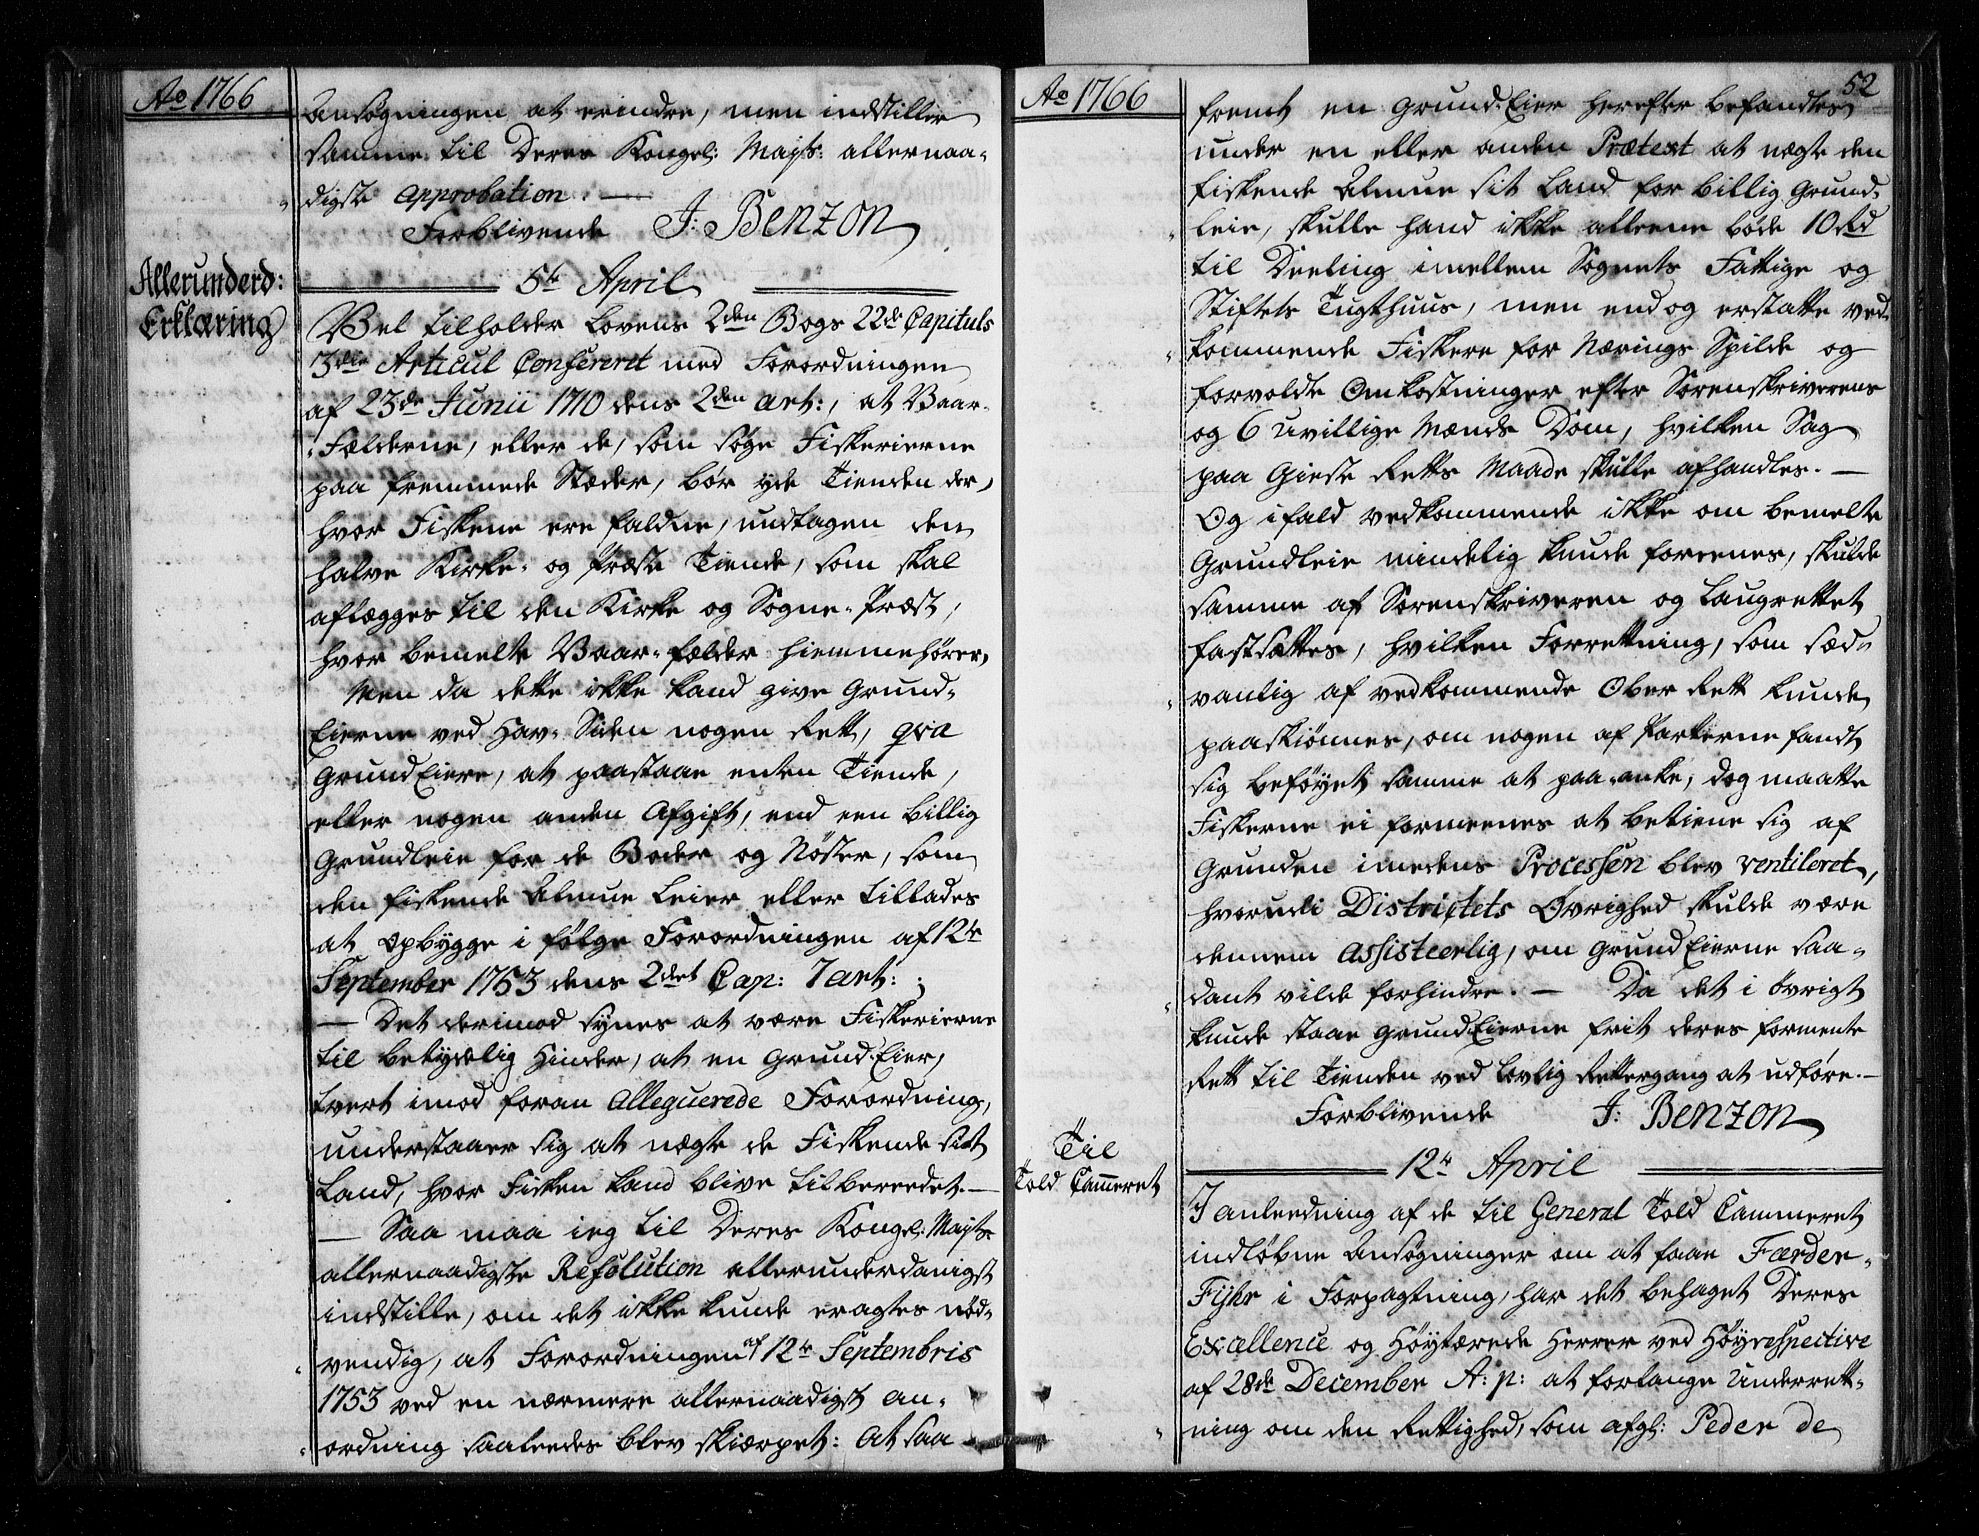 Ao 1766
Ansøgningen at erindre, men indstiller
samme til Deres Kongel: Majts: allernaa-
digste approbation. —
Forblivende J: Benzon
5te April
Allerunderd:
Erklæring
Vel tilholder Lovens 2den Bogs 22de Capituls
3die Articul Confereret med Forordningen
af 23de Junii 1710 dens 2den art:, at Vaar-
Fælderne, eller de, som søge Fiskerierne
paa fremmede Stæder, bør yde Tienden der,
hvor Fiskene ere faldne, undtagen den
halve Kirke- og Præste Tiende, som skal
aflægges til den Kirke og Sogne-Præst,
hvor bemelte Vaar-fælder hiemmehører,
Men da dette ikke kand give Grund-
Eierne ved Hav-Siden nogen Rett, qva
Grund Eiere, at paastaae enten Tiende,
eller nogen anden Afgift, end een billig
Grundleie for de Boder og Nøster, som
den fiskende Almue leier eller tillades
at opbygge i følge Forordningen af 12te
September 1753 dens 2det Cap: 7 art: ;
— Det derimod synes at være Fiskerierne
til betydelig Hinder, at en Grund-Eier,
tvert imod foran Alleguerede Forordning,
understaaer sig at nægte de Fiskende sitt
Land, hvor Fisken kand blive tilbereedet. —
— Saa maa ieg til Deres Kongel: Majts
allernaadigste Resolution allerunderdanigst
indstille, om det ikke kunde eragtes nød-
vendig, at Forordningen af 12te Septembris
1753 ved en nærmere allernaadigst an-
ordning saaleedes blev skiærpet: At saa
Ao 1766
52
fremt en Grund-Eier herefter befandtes
under en eller anden Prætext at nægte den
fiskende Almue sit Land for billig Grund-
leie, skulle hand ikke alleene bøde 10 Rd
til Deeling imellem Sognets Fattige og
Stiftets Tugthuus, men endog erstatte ved-
kommende Fiskere for Nærings Spilde og
forvoldte Omkostninger efter Sorenskriverens
og 6 uvillige Mænds Dom, hvilken Sag
paa Gieste Retts Maade skulle afhandles. —
Og ifald vedkommende ikke om bemelte
Grundleie mindelig kunde foreenes, skulde
samme af Sorenskriveren og Laugrettet
fastsættes, hvilken Forrettning, som sæd-
vanlig af vedkommende Ober Rett kunde
paaskiønnes, om nogen af Parterne fandt
sig beføyet samme at paa-anke, dog maatte
Fiskerne ei formeenes at betiene sig af
Grunden imedens Processen blev ventileret,
hvorudi Districtets Øvrighed skulde være
dennem assisteerlig, om Grund Eierne saa-
dant vilde forhindre. — Da det i øvrigt
kunde staae Grund-Eierne frit deres formente
Rett til Tienden ved lovlig Rettergang at udføre. —
Forblivende J: Benzon
12te April
Til
Told Cammeret
I anleedning af de til General Told Cammeret
indløbne Ansøgninger om at faae Færder-
Fyhr i Forpagtning, har det behaget Deres
Excellence og Høytærede Herrer ved Høyrespective
af 28de December A: p: at forlange Underrett-
ning om den Rettighed, som afgl: Peder de